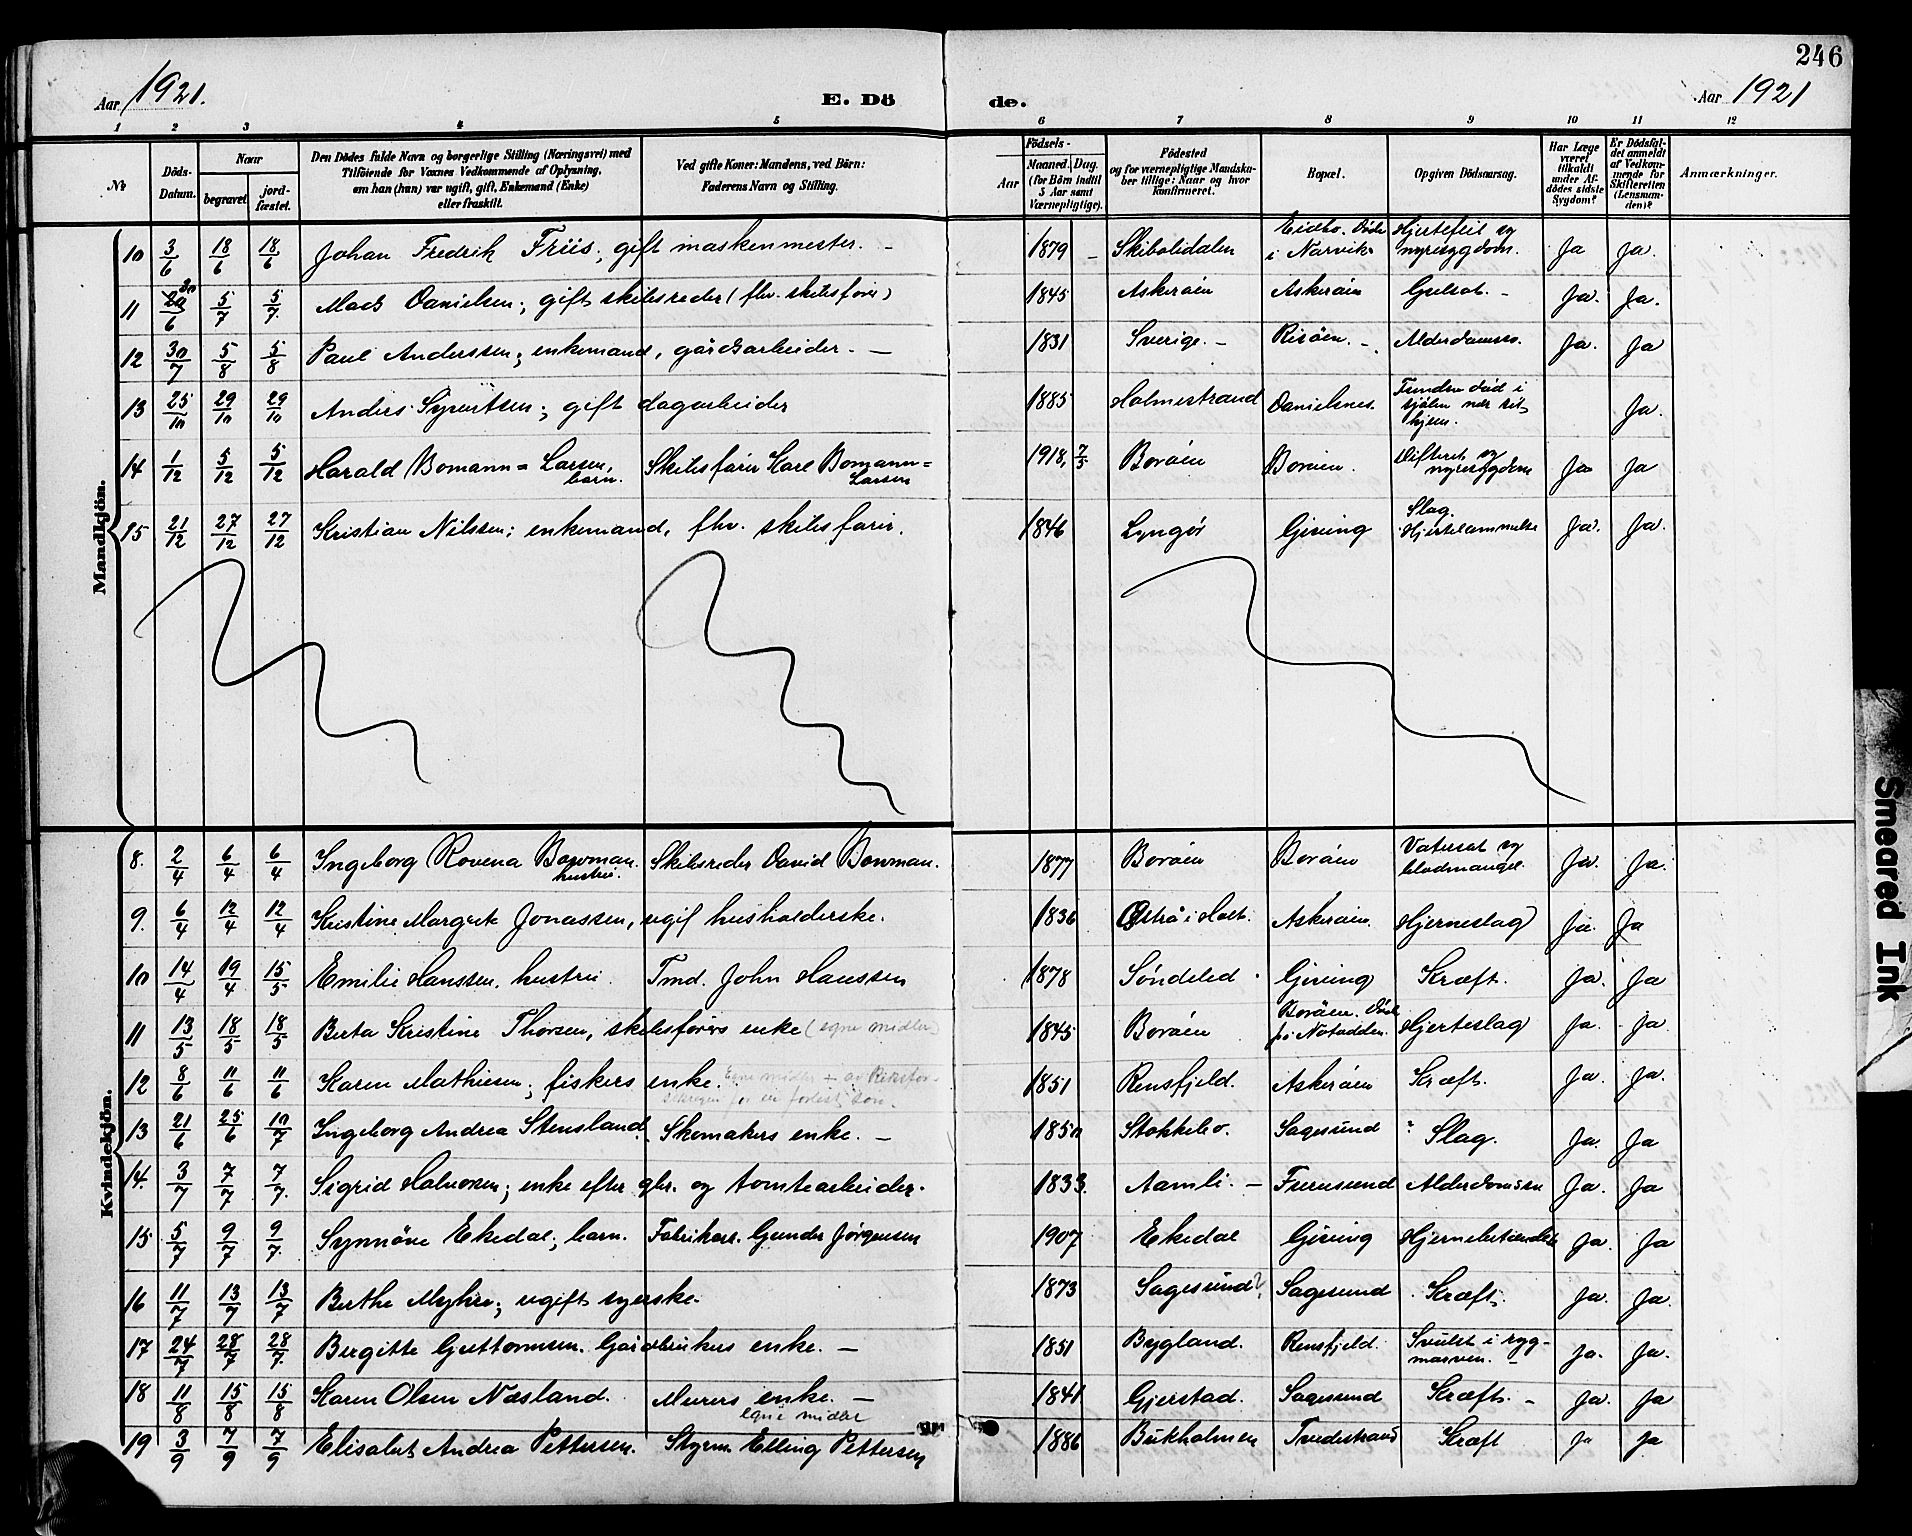 246
Aar 1921.
E. Dö de.
Aar 1921
1 2 3 4 5 6 7 8 9 10 11 12
№ Döds-Datum. Naar begravet jordfæstet. Den Dödes fulde Navn og borgerlige Stilling (Næringsvei) med Tilföiende for Voxnes Vedkommende af Oplysning, om han (hun) var ugift, gift, Enkemand (Enke) eller fraskilt. Ved gifte Koner: Mandens, ved Börn: Faderens Navn og Stilling. Födsels- Aar Maaned. Dag. (for Börn indtil 5 Aar samt Værnepligtige). Födested og for værnepligtige Mandskaber tillige: Naar og hvor konfirmeret. Bopæl. Opgiven Dödsaarsag. Har Læge været tilkaldt under Afdödes sidste Sygdom? Er Dödsfaldet anmeldt af Vedkommende for Skifteretten (Lensmanden)? Anmærkninger.
Mandkjön.
10 3/6 18/6 18/6 Johan Fredrik Friis, gift maskinmester. – 1879 – Skibolidalen Eidbo. Död i Narvik Hjertefeil og nyresygdom. Ja Ja.
11 30/6 5/7 5/7. Mads Danielsen; gift skibsreder (fhv. skibsförer) 1845 Askeröen Askeröen Gulsot. – Ja. Ja.
12 30/7 5/8 5/8 Paul Anderssen; enkemand, gårdsarbeider. – 1831 Sverige. – Risöen. – Alderdomssv. Ja. Ja
13 25/10 29/10 29/10 Anders Syvertsen; gift dagarbeider 1885 Holmestrand Danielsnes. Funden död i sjöen nær sit hjem. Ja.
14 1/12 5/12 5/12 Harald Bomann=Larsen, barn. Skibsförer Karl Bomann=Larsen 1918, 7/5 Boröen Boröen. Difterit og nyresygdom Ja Ja
15 21/12 27/12 27/12 Kristian Nilssen; enkemand, fhv. skibsförer. 1846 Lyngör Gjeving Slag. Hjertelammelse Ja. Ja.
Kvindekjön.
8. 2/4 6/4 6/4 Ingeborg Rovena Bowman. hustru. Skibsreder David Bowman. 1877 Boröen Boröen Vatersot og blodmangel. Ja. Ja.
9. 6/4 12/4 12/4 Kristine Margrete Jonassen, ugift husholderske. 1836 Östrå i Holt. Askeröen. Hjerneslag Ja. Ja
10 14/4 19/4 15/5 Emilie Hanssen, hustru. Tmd. John Hanssen 1878 Söndeled. Gjeving Kræft. Ja. Ja
11 13/5 18/5 18/5 Berta Kristine Thorsen, skibsförers enke (egne midler) 1845 Boröen Boröen. Död på Notodden. Hjerteslag Ja. Ja
12 8/6 11/6 11/6 Karen Mathiesen; fiskers enke. Egne midler + av Riksfor- for en forlist sön. 1851 Rensfjeld. Askeröen Kræft. Ja. Ja.
13 21/6 25/6 10/7 Ingeborg Andrea Stensland. Skomakers enke. – 1850 Stokkebo. Sagesund ? Slag. Ja. Ja
14. 3/7 7/7 7/7. Sigrid Halvorsen; enke efter gbr. og tomtearbeider. 1833. Aamli. – Furusund Alderdomssv Ja. Ja
15 5/7 9/7 9/7. Synnöve Ekedal; barn. Fabrikarb. Gunder Jørgensen 1907 Ekedal Gjeving Hjernebetændelse Ja. Ja
16 11/7 13/7 13/7 Berthe Myhre; ugift syerske. 1873 Sagesund?. Sagesund Kræft. Ja. Ja.
17 24/7 28/7 28/7. Bergitte Guttormsen. Gårdbrukers enke. – 1851 Bygland. Rensfjeld. Svulst i rygmarven. – Ja. Ja.
18 11/8 15/8 15/8 Karen Olsen Næsland. Murers enke. – egne midler 1841 Gjerstad. Sagesund Kræft. – Ja. Ja
19 3/9 7/9 7/9 Elisabet Andrea Pettersen. Styrm. Elling Pettersen 1886 Bukholmen Tvedestrand Kræft Ja Ja
Smeared Ink